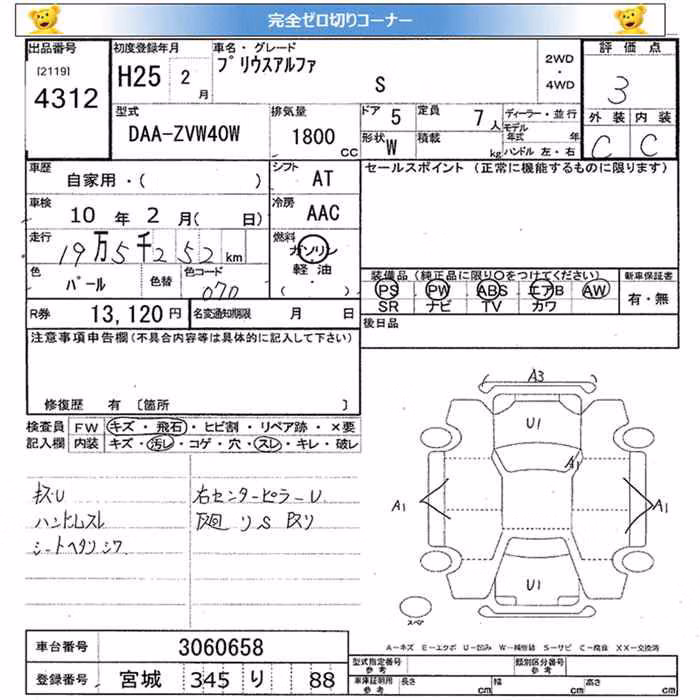 完全ゼロ切りコーナー
出品番号
[2119]
4312
初度登録年月
H25 2 月
車名・グレード
プリウスアルファ
S
2WD
・
4WD
評価点
3
外装 内装
C C
型式
DAA-ZVW40W
排気量
1800 CC
ドア 5
定員 7 人
形状 W
積載 kg
ディーラー・並行
モデル年式 年
ハンドル 左・右
車歴
自家用・( )
シフト
AT
セールスポイント (正常に機能するものに限ります)
車検
10 年 2 月( 日)
冷房
AAC
走行
19万5千252 km
燃料
ガソリン
軽油
( ・ )
色
パール
色替
色コード
070
装備品 (純正品に限り○をつけてください)
PS PW ABS エアB AW
SR ナビ TV カワ
新車保証書
有・無
R券 13,120 円
名変通知期限 月 日
後日品
注意事項申告欄(不具合内容等は具体的に記入して下さい)
修復歴 有 〔箇所 〕
検査員記入欄
FW キズ・飛石・ヒビ割・リペア跡・×要
内装 キズ・汚レ・コゲ・穴・スレ・キレ・破レ
キズU
ハンドルスレ
シートヘタリシワ
右センターピラーU
廻りS
A3
U1
A1
A1
A1
U1
スペア
A-キズ E-エクボ U-凹み W-補修跡 S-サビ C-腐食 XX-交換済
車台番号 3060658
登録番号 宮城 345 り 88
型式指定番号
参考
類別区分番号
参考
車庫証明用
参考
長さ cm
幅 cm
高さ cm